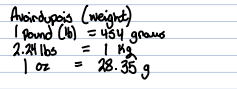 Avoirdupois (weight)
1 Pound (lb) = 454 grams
2.24 lbs = 1 Kg
1 oz = 28.35 g